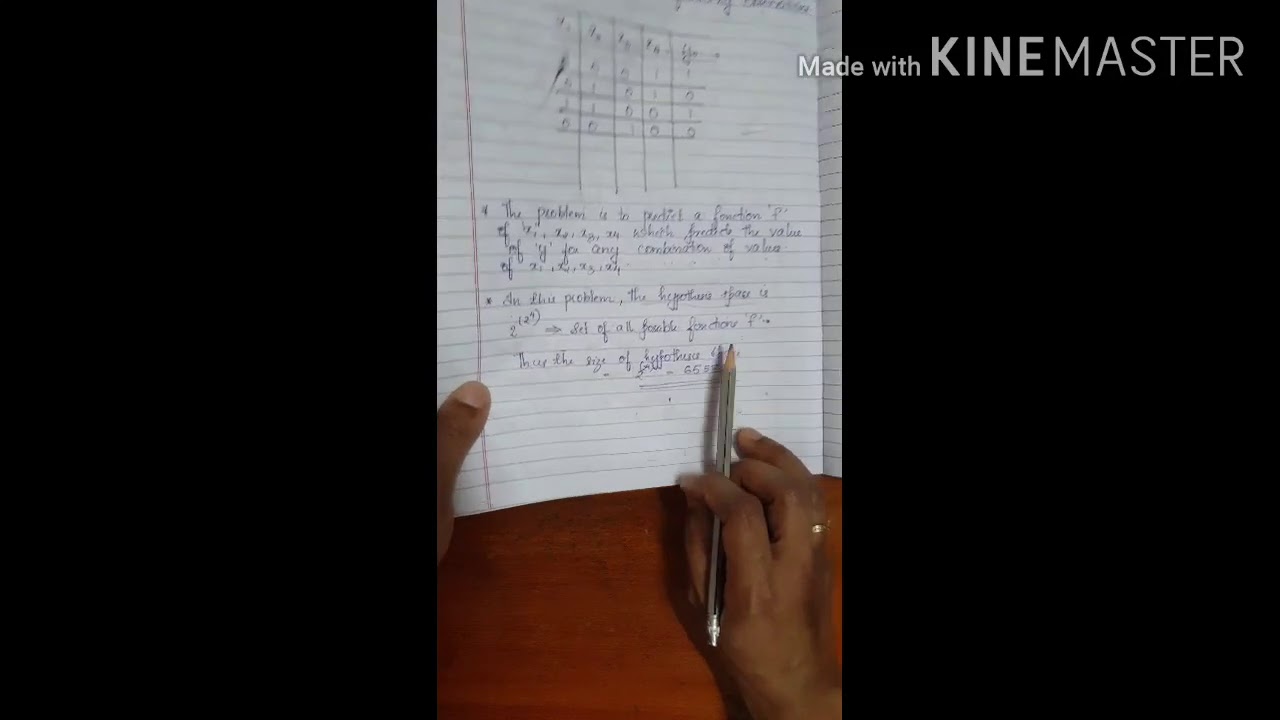 Made with KINEMASTER
x1 x2 x3 x4 y
0 0 1 1
0 1 0 1 0
1 1 0 0 1
0 0 1 0 0
* The problem is to predict a function 'f'
of 'x1, x2, x3, x4 which predicts the value
of 'y' for any combination of value
of x1, x2, x3, x4.
* In this problem, the hypothesis space is
2^(2^4) ⇒ set of all possible functions 'f'.
Thus the size of hypothesis
= 2^(2^4) = 655